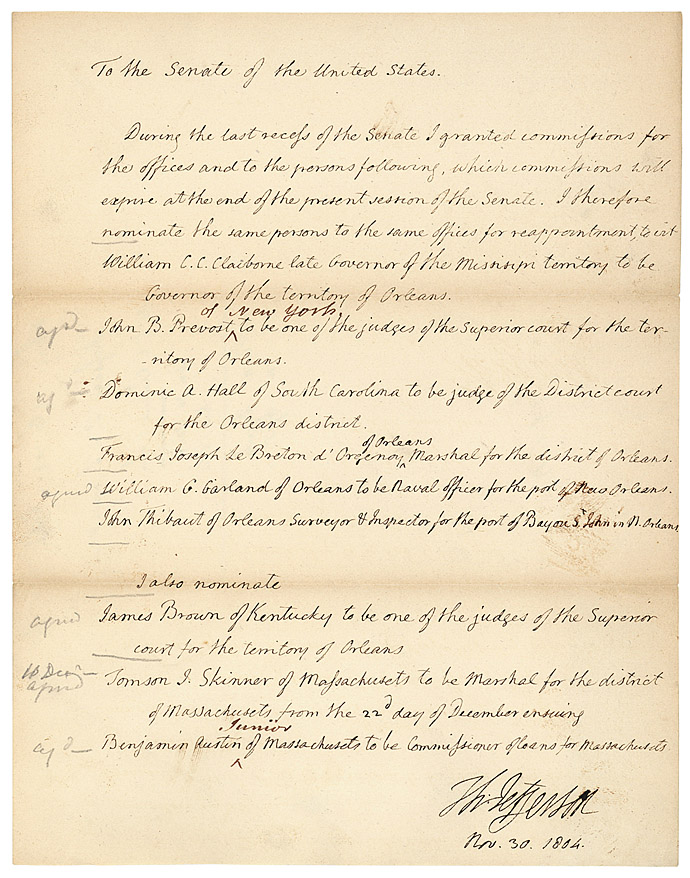 To the Senate of the United States.
During the last recess of the Senate I granted commissions for
the offices and to the persons following, which commissions will
expire at the end of the present session of the Senate. I therefore
nominate the same persons to the same offices for reappointment, to wit
William C. C. Claiborne late Governor of the Misisipi territory to be
Governor of the territory of Orleans.
of New York,
John B. Prevost ^ to be one of the judges of the Superior court for the ter-
-ritory of Orleans.
Dominic A. Hall of South Carolina to be judge of the District court
for the Orleans district.
of Orleans
Francis Joseph Le Breton d' Orgenoy ^ Marshal for the district of Orleans.
agreed William G. Garland of Orleans to be Naval officer for the port of New Orleans.
John Thibaut of Orleans Surveyor & Inspector for the port of Bayou St. John in N. Orleans
I also nominate
agreed James Brown of Kentucky to be one of the judges of the Superior
court for the territory of Orleans
10 Decr
agreed Tomson J. Skinner of Massachusets to be Marshal for the district
of Massachusets from the 22d day of December ensuing
Junior
Benjamin Austin ^ of Massachusets to be Commissioner of loans for Massachusets
Th: Jefferson
Nov. 30. 1804.